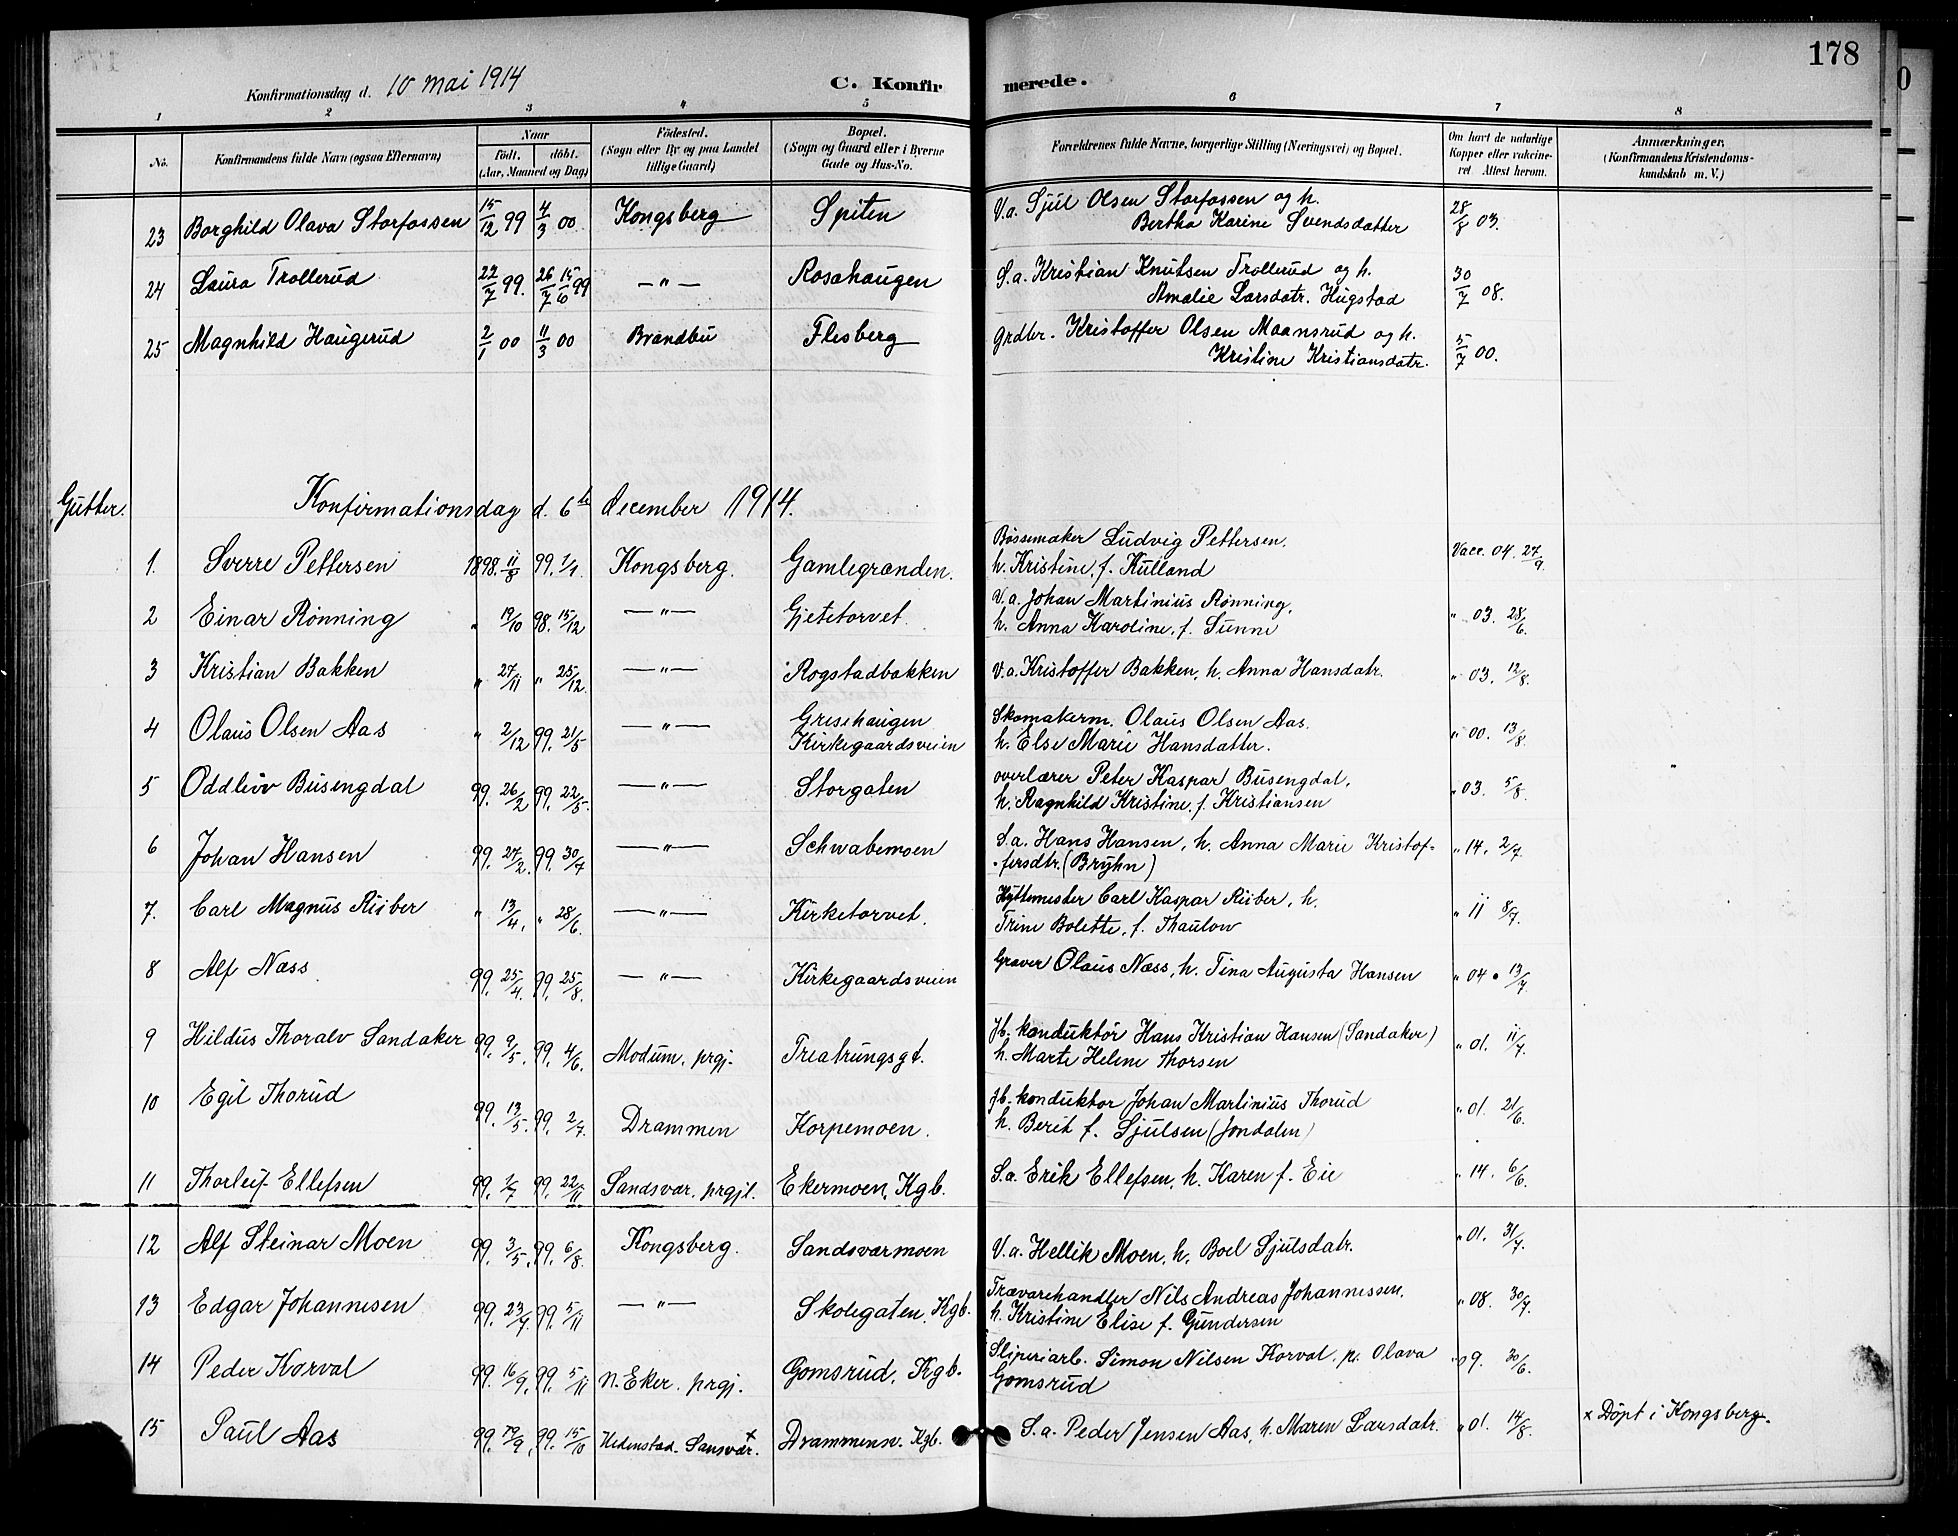 178
Konfirmationsdag d. 10 mai 1914
C. Konfirmerede.
1 2 3 4 5 6 7 8
No. Konfirmandens fulde Navn (ogsaa Efternavn) Naar födt. döbt. (Aar, Maaned og Dag) Födested. (Sogn eller By og paa Landet tillige Gaard) Bopæl. (Sogn og Gaard eller i Byerne Gade og Hus-No. Forældrenes fulde Navne, borgerlige Stilling (Næringsvei) og Bopæl. Om havt de naturlige Kopper eller vakcineret. Attest herom. Anmærkninger, (Konfirmandens Kristendomskundskab m. V.)
23 Borghild Olava Storfossen 15/12 99 4/3 00 Kongsberg Spiten V.a. Sjul Olsen Storfossen og h. 28/8 03.
Bertha Karine Svendsdatter
24 Laura Trollerud 22/7 99. 26/7 15/6 99 —"— Rosahaugen S.a. Kristian Knutsen Trollerud og h. 30/7 08.
Amalie Larsdatr. Hugstad
25 Magnhild Haugerud 2/1 00 11/3 00 Brandbu Flesberg Grdbr. Kristoffer Olsen Maansrud og h. 5/7 00.
Kristine Kristiansdatr.
Gutter. Konfirmationsdag d. 6te december 1914.
1. Sverre Pettersen 1898. 11/8 99. 1/1. Kongsberg. Gamlegranden. Bössemaker Ludvig Pettersen. Vacc. 04. 27/9.
h. Kristine, f. Kulland
2 Einar Rønning " 19/10 98. 15/12 —"— Gjetetorvet. V.a. Johan Martinius Rønning, " 03. 28/6.
h. Anna Karoline, f. Sunne
3 Kristian Bakken " 27/11 " 25/12. —"— Rogstadbakken V.a. Kristoffer Bakken, h. Anna Hansdatr. " 03. 12/8.
4 Olaus Olsen Aas " 2/12 99. 21/5 —"— Grisehaugen Skomakerm. Olaus Olsen Aas. " 00. 13/8.
Kirkegaardsveien h. Else Marie Hansdatter.
5 Oddleiv Busengdal 99. 26/2 99. 22/5. —"— Storgaten overlærer Peter Kaspar Busengdal, " 03. 5/8.
h. Ragnhild Kristine, f. Kristiansen
6 Johan Hansen 99. 27/2. 99. 30/7 —"— Schwabemoen S.a. Hans Hansen, h. Anna Marie Kristof- " 14. 2/7.
fersdtr. (Bryhn)
7. Carl Magnus Riiber " 13/4. " 28/6. —"— Kirketorvet. Hyttemester Carl Kaspar Riiber, h. " 11 8/7.
Trine Bolette, f. Thaulow
8 Alf Næss 99. 25/4. 99. 25/8. —"— Kirkegaardsveien Graver Olaus Næss, h. Tina Augusta Hansen " 04. 13/7.
9 Hildus Thoralv Sandaker 99. 9/5. 99. 4/6. Modum. prgj. Treatrungsgt. Jb. konduktör Hans Kristian Hansen (Sandaker) " 01. 11/7.
h. Marte Helene Thorsen
10 Egil Thorud 99. 13/5. 99. 2/7. Drammen Korpemoen. Jb. konduktor Johan Martinius Thorud " 01. 21/6.
h. Berit f. Sjulsen (Jondalen)
11 Thorleif Ellefsen 99. 1/7 99. 22/11. Sandsvær. prgjl. Ekermoen, Kgb. S.a. Erik Ellefsen, h. Karen f. Eie " 14. 6/6.
12 Alf Steinar Moen 99. 3/5. 99. 6/8. Kongsberg. Sandsværmoen V.a. Hellik Moen, h. Boel Sjulsdatr. " 01. 31/7.
13 Edgar Johannesen 99. 23/7. 99. 5/11 —"— Skolegaten, Kgb. Trævarehandler Nils Andreas Johannessen, " 08. 30/7.
h. Kristine Elise f. Gundersen
14 Peder Korval 99. 16/9. 99. 5/11 N. Eker. prgj. Gomsrud, Kgb. Sliperiarb. Simon Nilsen Korval, p. Olava " 09. 30/6.
Gomsrud
15 Paul Aas 99. 19/9. 99. 15/10 Hedenstad. Sansvær.x Drammensv. Kgb. S.a. Peder Jensen Aas, h. Maren Larsdatr. " 01. 14/8. x Döpt i Kongsberg.